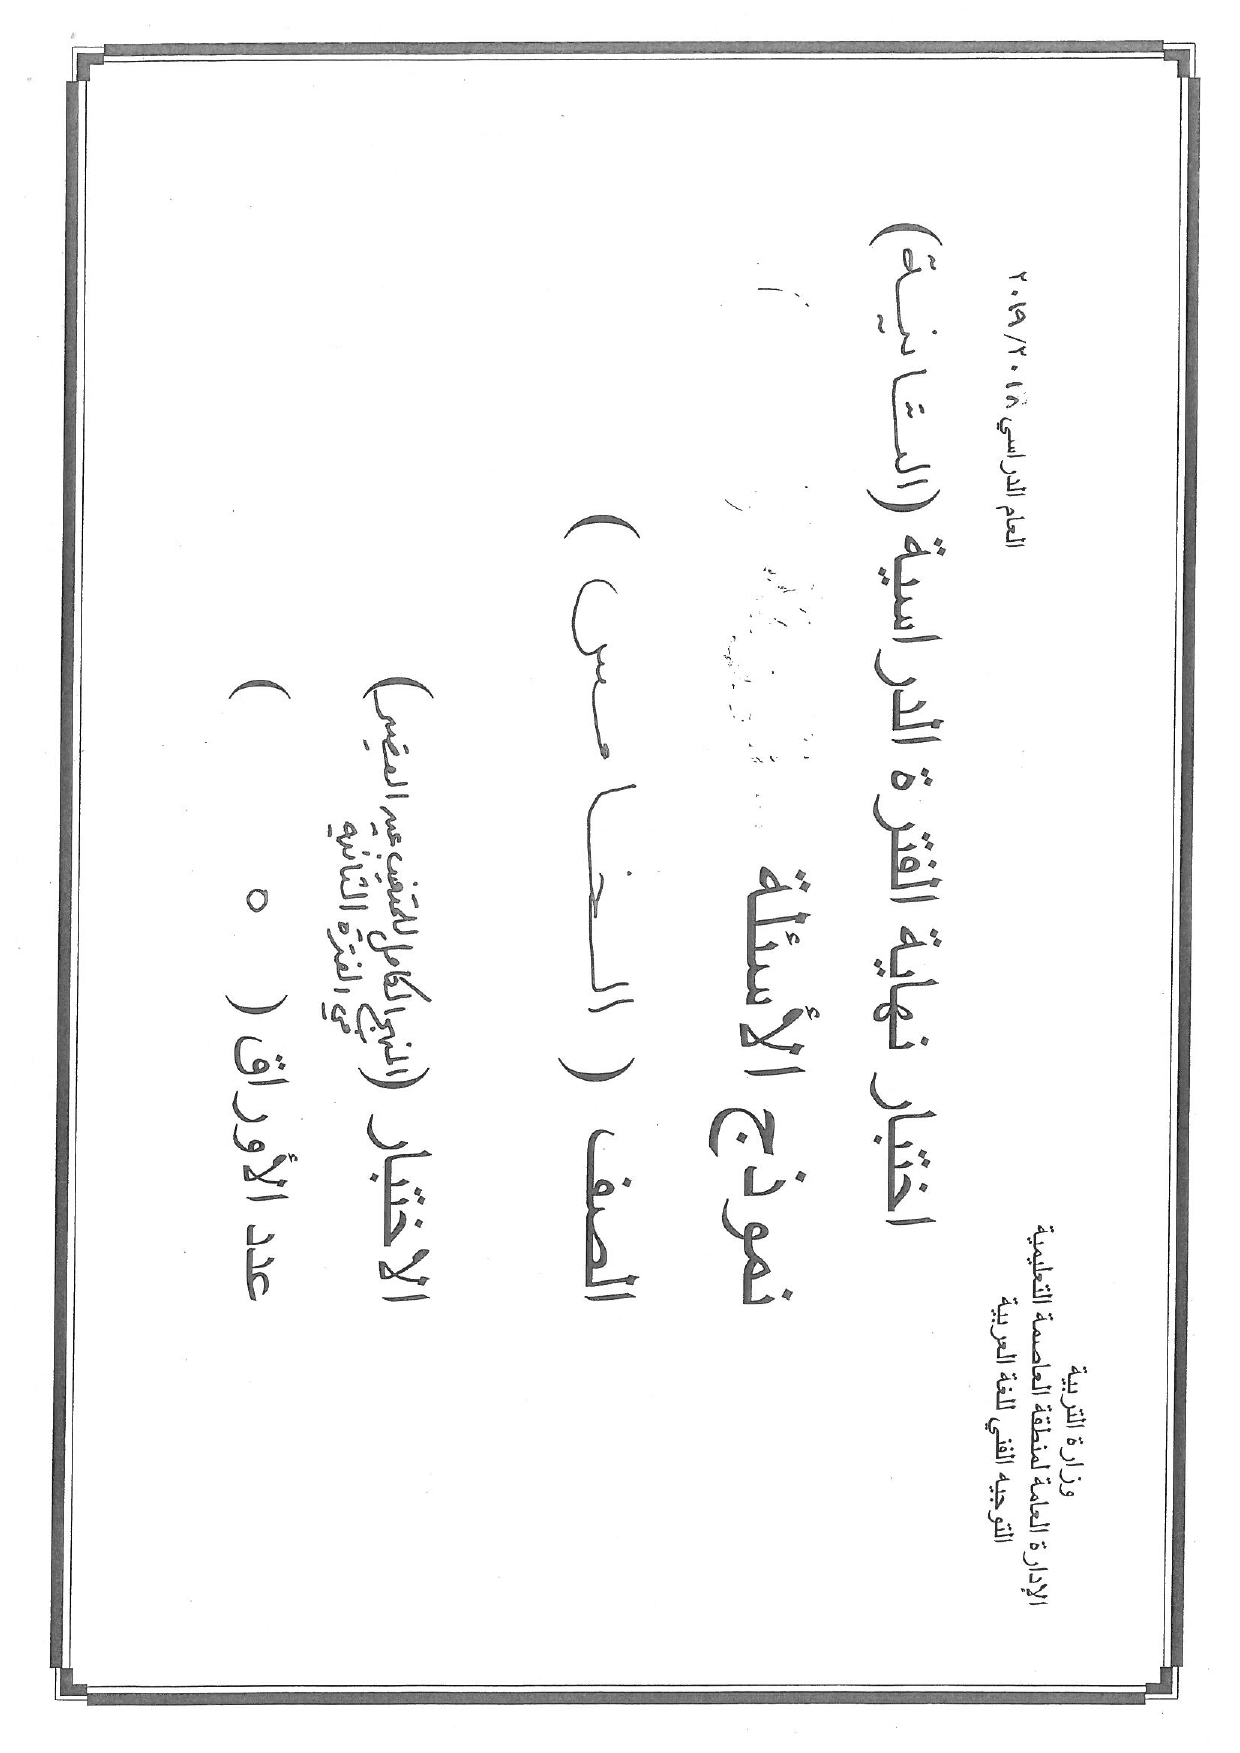 وزارة التربية
الإدارة العامة لمنطقة العاصمة التعليمية
التوجيه الفني للغة العربية
العام الدراسي ٢٠١٨/٢٠١٩
اختبار نهاية الفترة الدراسية (الثانية)
نموذج الأسئلة
الصف ( الخامس )
الاختبار (المنهج الكامل للمتغيبين
في الفترة الثانية
عدد الأوراق ( ٥ )